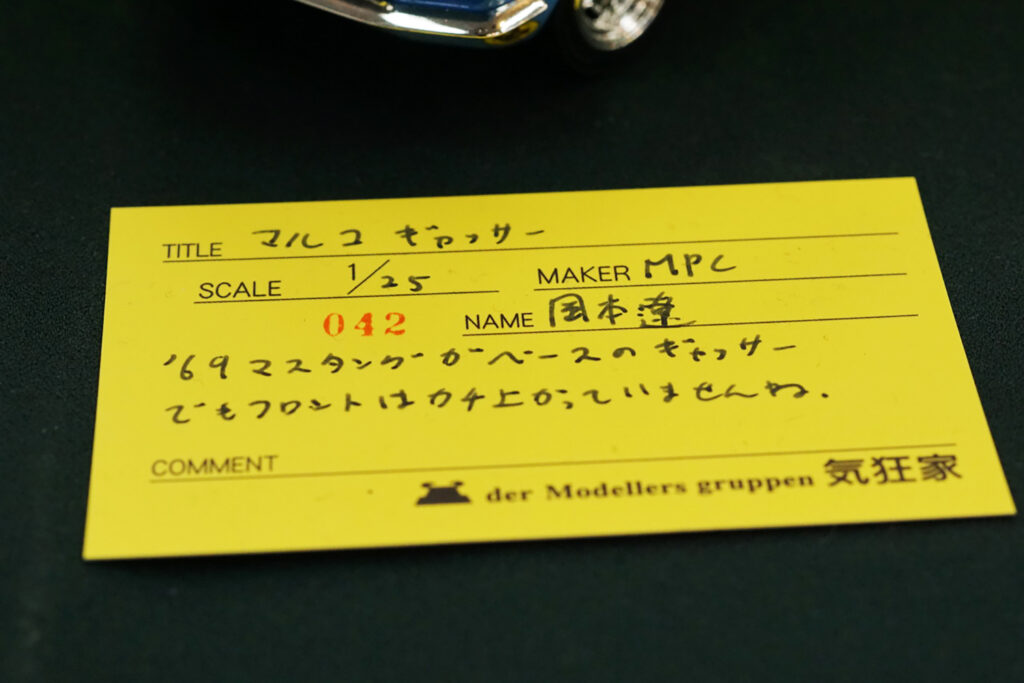 TITLE マルコ ギャッサー
SCALE 1/25 MAKER MPC
042 NAME 岡本遼
'69 マスタングがベースのギャッサー
でもフロントはカチ上がっていませんね.
COMMENT
der Modellers gruppen 気狂家